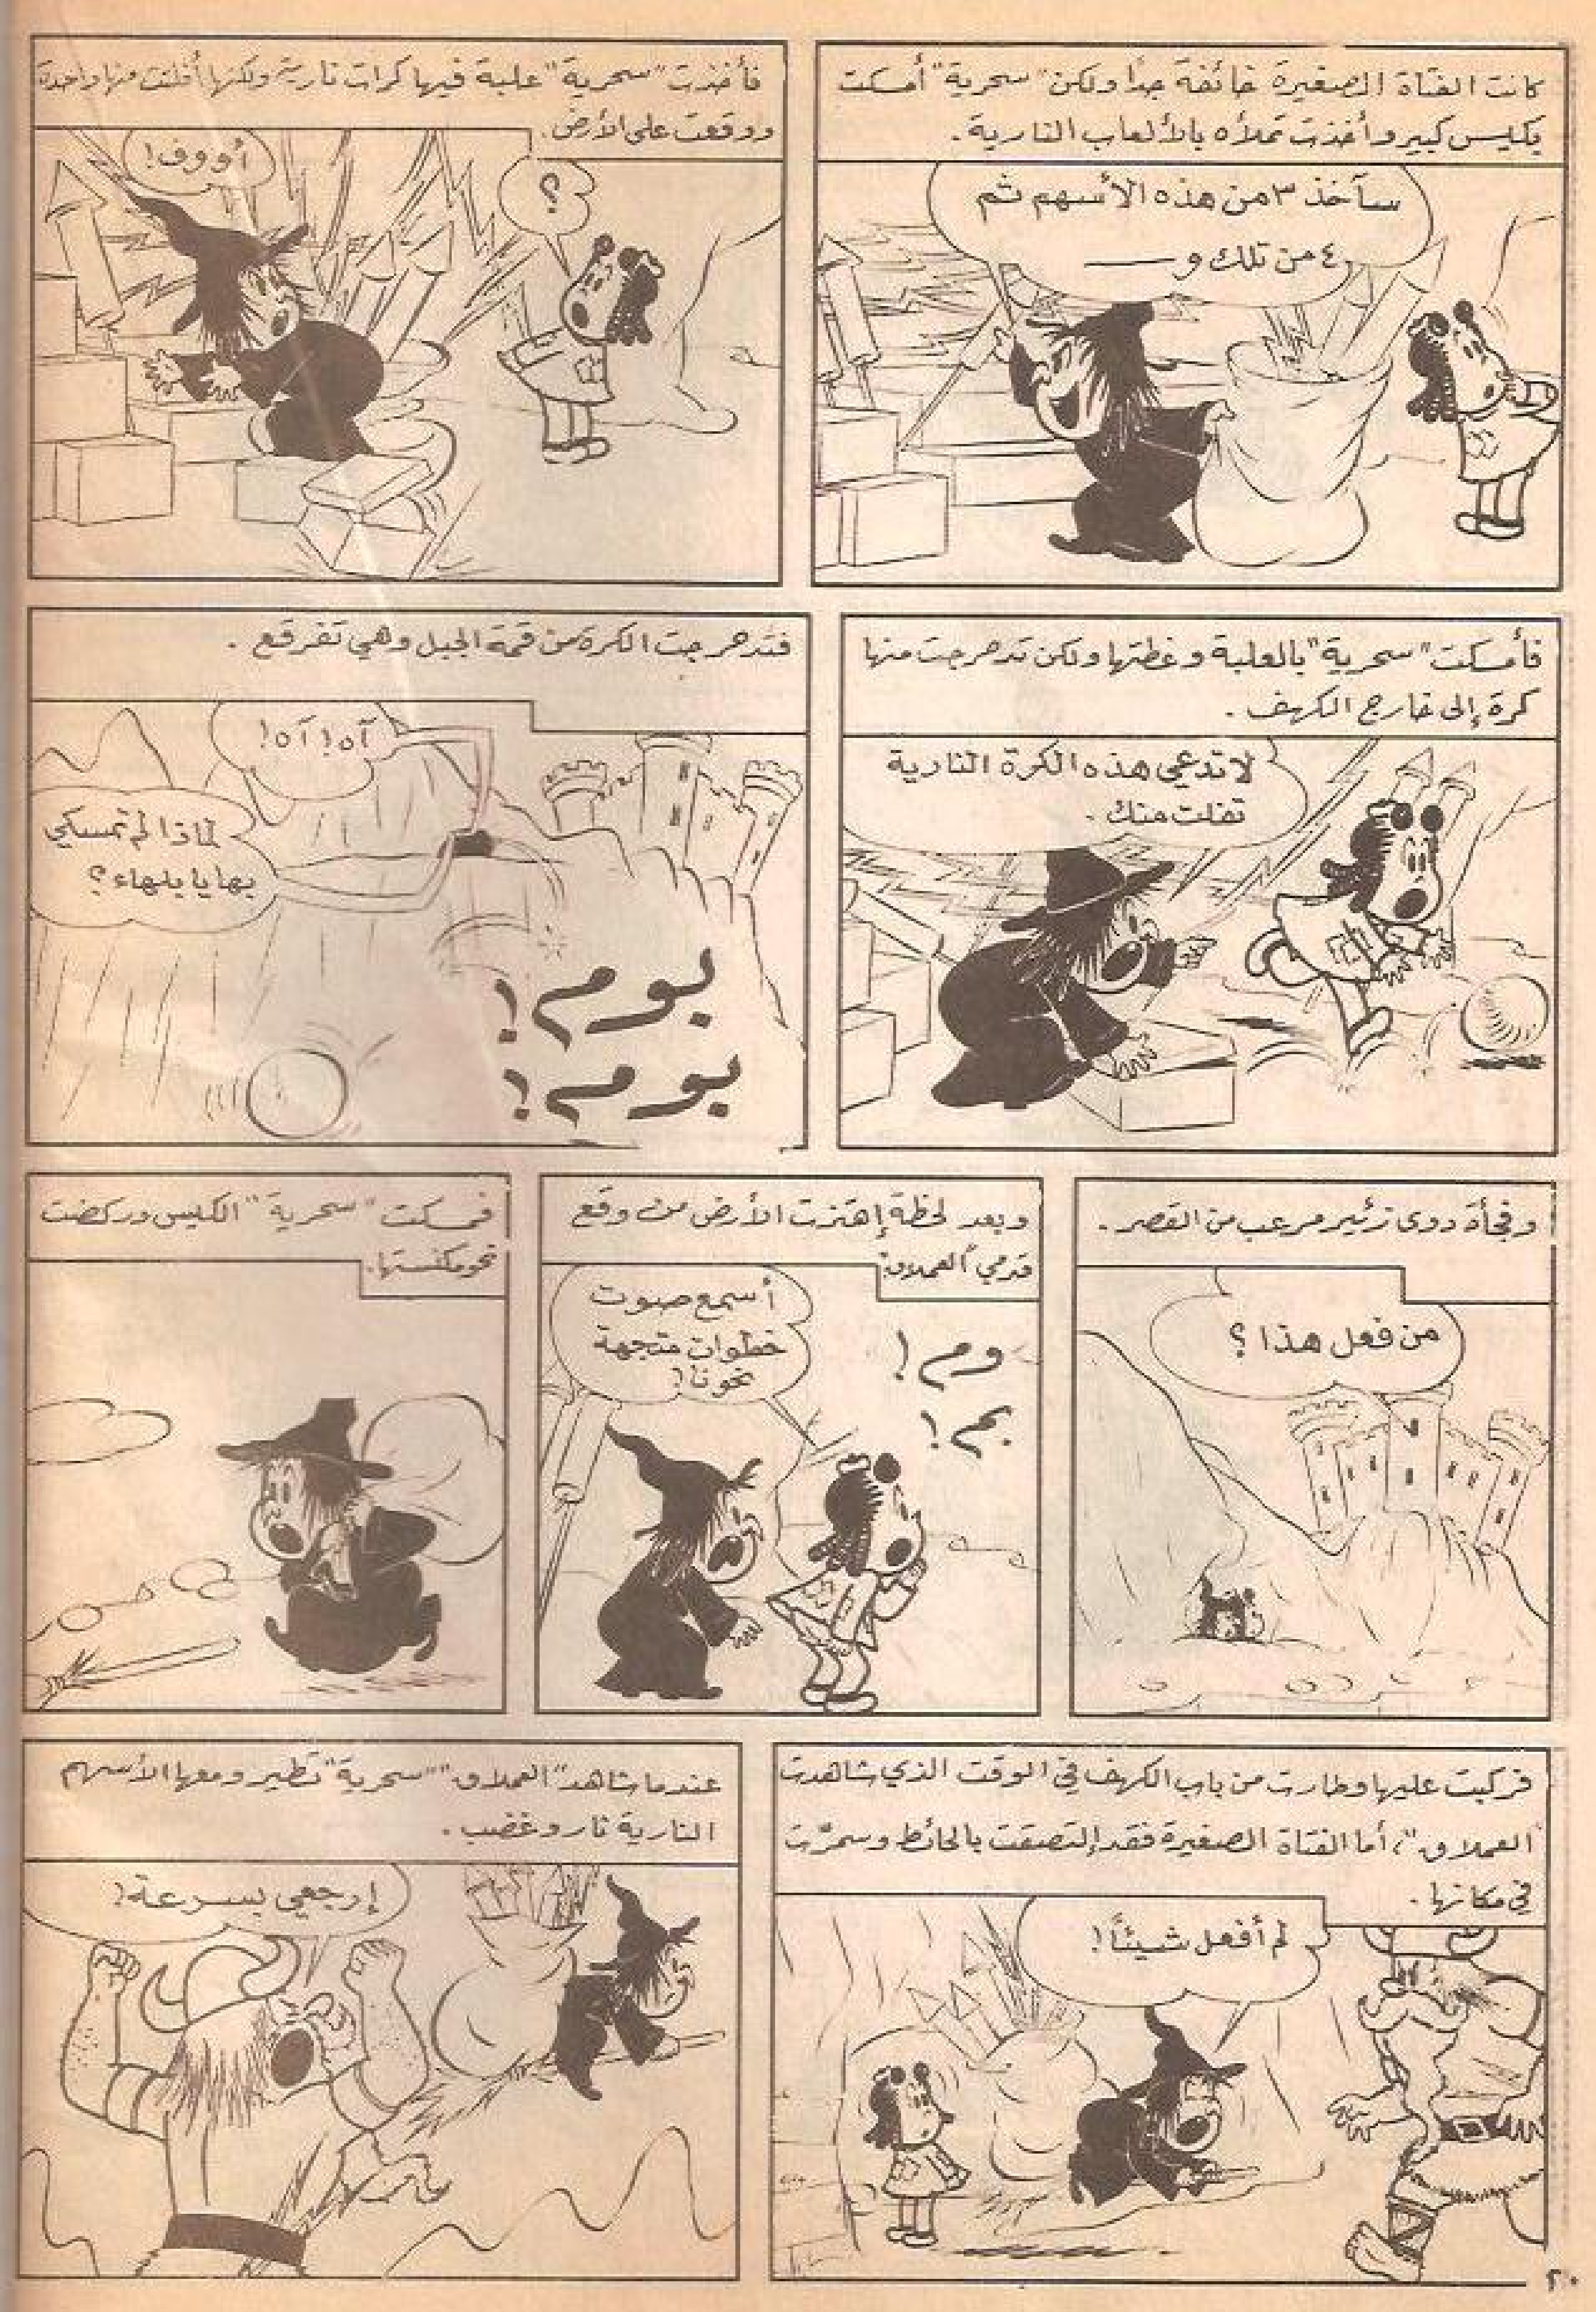 كانت الفتاة الصغيرة خائفة جدًا ولكن "سحرية" أمسكت
بكيس كبير وأخذت تملأه بالألعاب النارية.
سآخذ ٣ من هذه الأسهم ثم
٤ من تلك و
فأخذت "سحرية" علبة فيها كرات نارية ولكنها أفلتت منها واحدة
ووقعت على الأرض.
أووف!
؟
فأمسكت "سحرية" بالعلبة وغطتها ولكن تدحرجت منها
كرة إلى خارج الكهف.
لا تدعي هذه الكرة النارية
تفلت منك.
فتدحرجت الكرة من قمة الجبل وهي تفرقع.
آه! آه!
لماذا لم تمسكي
بها يا بلهاء؟
بوم!
بوم!
وفجأة دوى زئير مرعب من القصر.
من فعل هذا؟
وبعد لحظة إهتزت الأرض من وقع
قدمي "العملاق"
أسمع صوت
خطوات متجهة
نحونا!
وم!
بم!
فمسكت "سحرية" الكيس وركضت
نحو مكنستها.
فركبت عليها وطارت من باب الكهف في الوقت الذي شاهدت
"العملاق"، أما الفتاة الصغيرة فقد إلتصقت بالحائط وسمرّت
في مكانها.
لم أفعل شيئاً!
عندما شاهد "العملاق" "سحرية" تطير ومعها الأسهم
النارية ثار وغضب.
إرجعي بسرعة!
٢٠